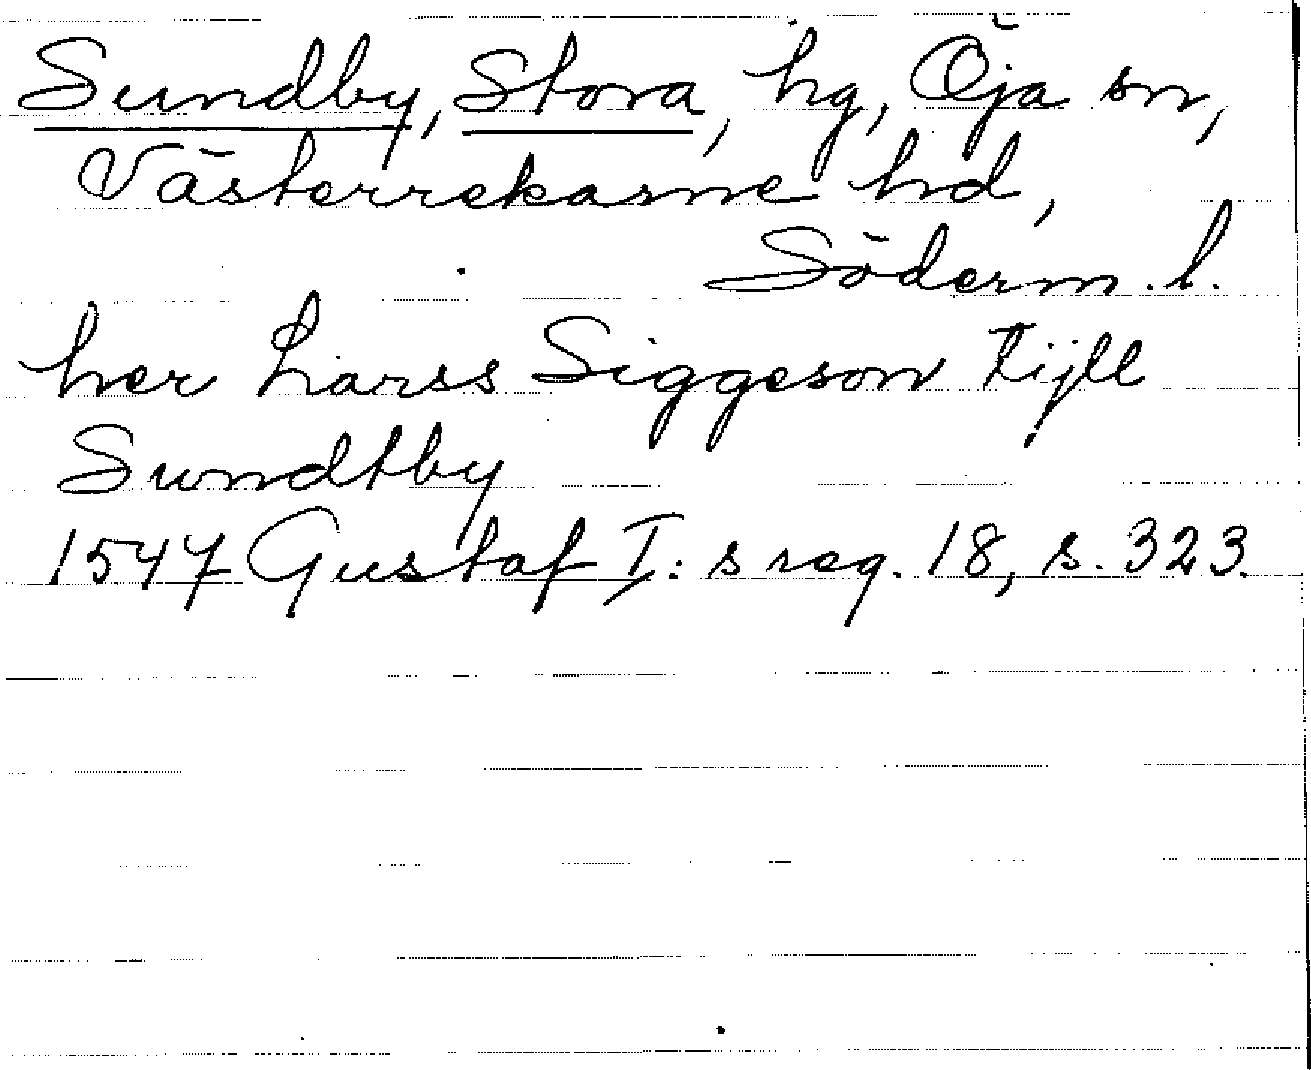 Sundby, Stora, hg, Öja sn,
Västerrekarne hd,
Söderm. l.
her Larss Siggeson tijll
Sundtby
1547 Gustaf I:s reg. 18, s. 323.